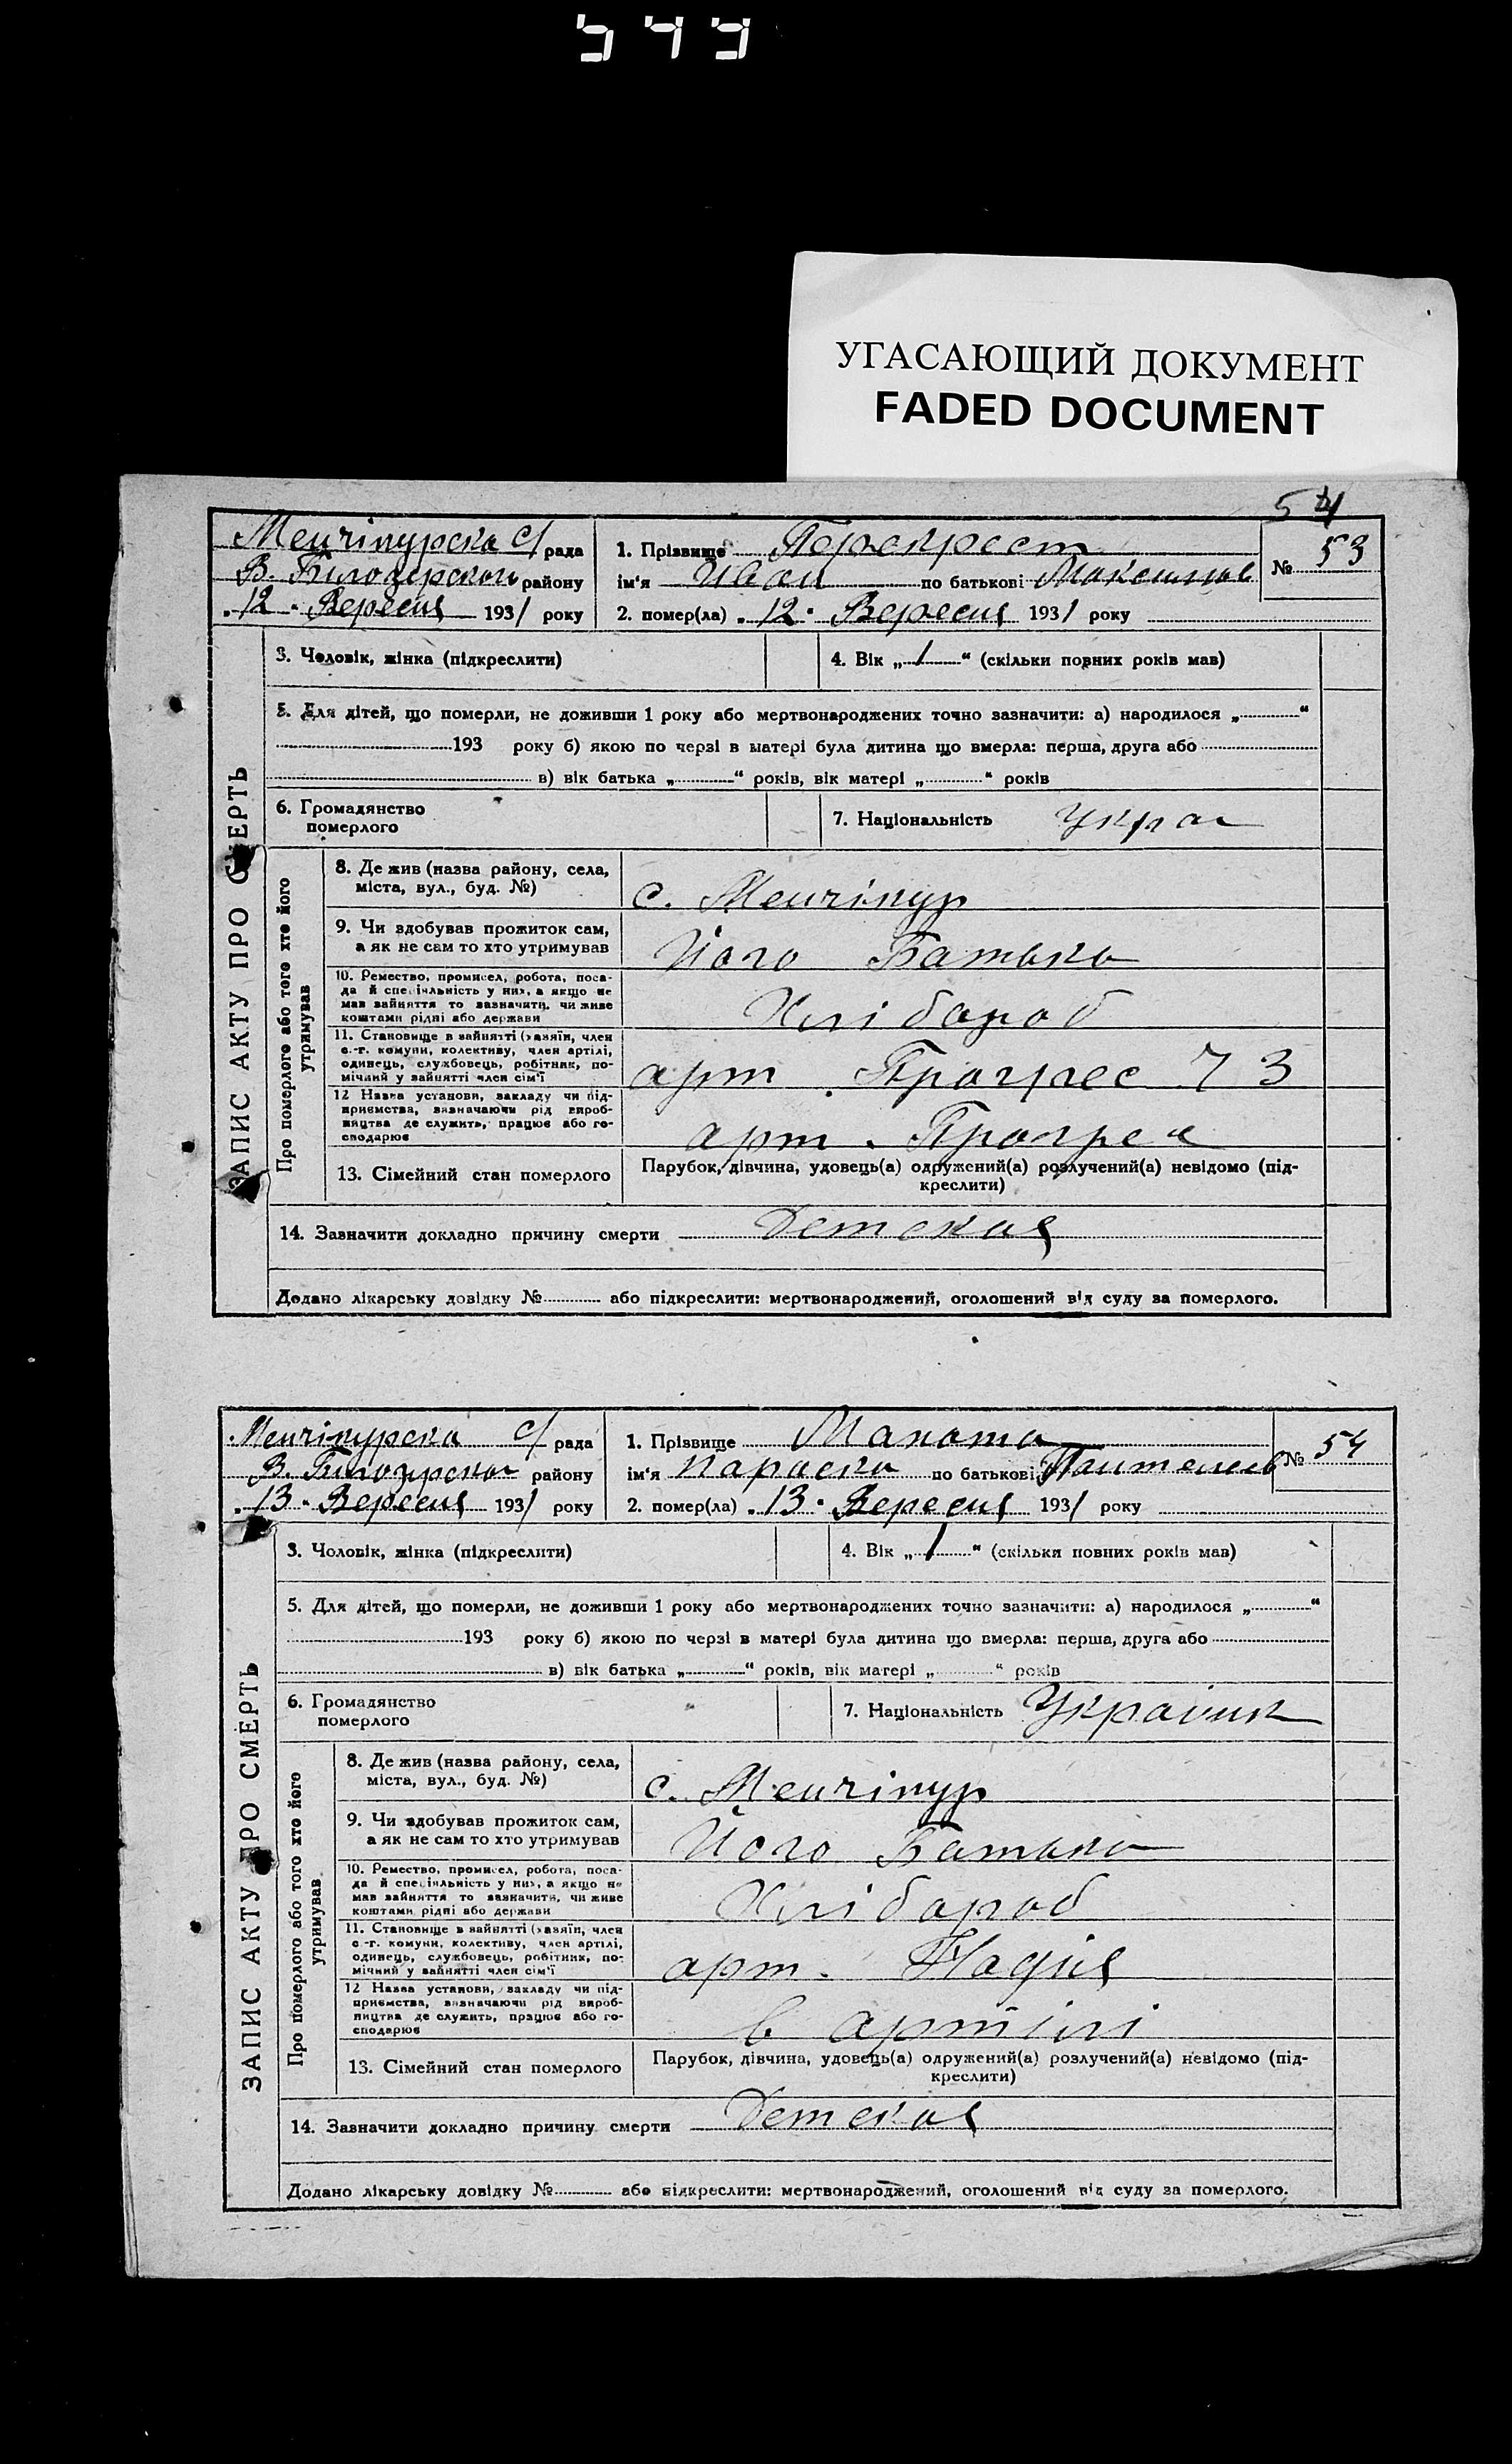 549
УГАСАЮЩИЙ ДОКУМЕНТ
FADED DOCUMENT
54
Менчікурска с/рада
В. Білозерского району
„12“ Вересня 1931 року
1. Прізвище Перекрест
ім'я Иван по батькові Максимов
2. помер(ла) „12“ Вересня 1931 року
№ 53
ЗАПИС АКТУ ПРО СМЕРТЬ
3. Чоловік, жінка (підкреслити)
4. Вік „1“ (скільки повних років мав)
5. Для дітей, що померли, не доживши 1 року або мертвонароджених точно зазначити: а) народилося „ “
193 року б) якою по черзі в матері була дитина що вмерла: перша, друга або
в) вік батька „ “ років, вік матері „ “ років
6. Громадянство
померлого
7. Національність Украї
Про померлого або того хто його
утримував
8. Де жив (назва району, села,
міста, вул., буд. №)
с. Менчікур
9. Чи здобував прожиток сам,
а як не сам то хто утримував
Його Батько
10. Ремество, промисел, робота, поса-
да й спеціяльність у них, а якщо не
мав зайняття то зазначити, чи живе
коштами рідні або держави
Хлібороб
11. Становище в зайнятті (хазяїн, член
с.-г. комуни, колективу, член артілі,
одинець, службовець, робітник, по-
мічний у зайнятті член сім'ї
арт. Прогрес 73
12 Назва установи, закладу чи під-
приємства, визначаючи рід вироб-
ництва де служить, працює або го-
сподарює
арт. Прогрес
13. Сімейний стан померлого
Парубок, дівчина, удовець(а) одружений(а) розлучений(а) невідомо (під-
креслити)
14. Зазначити докладно причину смерти Детская
Додано лікарську довідку № або підкреслити: мертвонароджений, оголошений від суду за померлого.
Менчікурска с/рада
В. Білозерского району
„13“ Вересня 1931 року
1. Прізвище
ім'я Параска по батькові Пантелеев
2. помер(ла) „13“ Вересня 1931 року
№ 54
ЗАПИС АКТУ ПРО СМЕРТЬ
3. Чоловік, жінка (підкреслити)
4. Вік „1“ (скільки повних років мав)
5. Для дітей, що померли, не доживши 1 року або мертвонароджених точно зазначити: а) народилося „ “
193 року б) якою по черзі в матері була дитина що вмерла: перша, друга або
в) вік батька „ “ років, вік матері „ “ років
6. Громадянство
померлого
7. Національність Україинк
Про померлого або того хто його
утримував
8. Де жив (назва району, села,
міста, вул., буд. №)
с. Менчікур
9. Чи здобував прожиток сам,
а як не сам то хто утримував
Його Батько
10. Ремество, промисел, робота, поса-
да й спеціяльність у них, а якщо не
мав зайняття то зазначити, чи живе
коштами рідні або держави
Хлібороб
11. Становище в зайнятті (хазяїн, член
с.-г. комуни, колективу, член артілі,
одинець, службовець, робітник, по-
мічний у зайнятті член сім'ї
арт. Надія
12 Назва установи, закладу чи під-
приємства, визначаючи рід вироб-
ництва де служить, працює або го-
сподарює
в артілі
13. Сімейний стан померлого
Парубок, дівчина, удовець(а) одружений(а) розлучений(а) невідомо (під-
креслити)
14. Зазначити докладно причину смерти Детская
Додано лікарську довідку № або підкреслити: мертвонароджений, оголошений від суду за померлого.